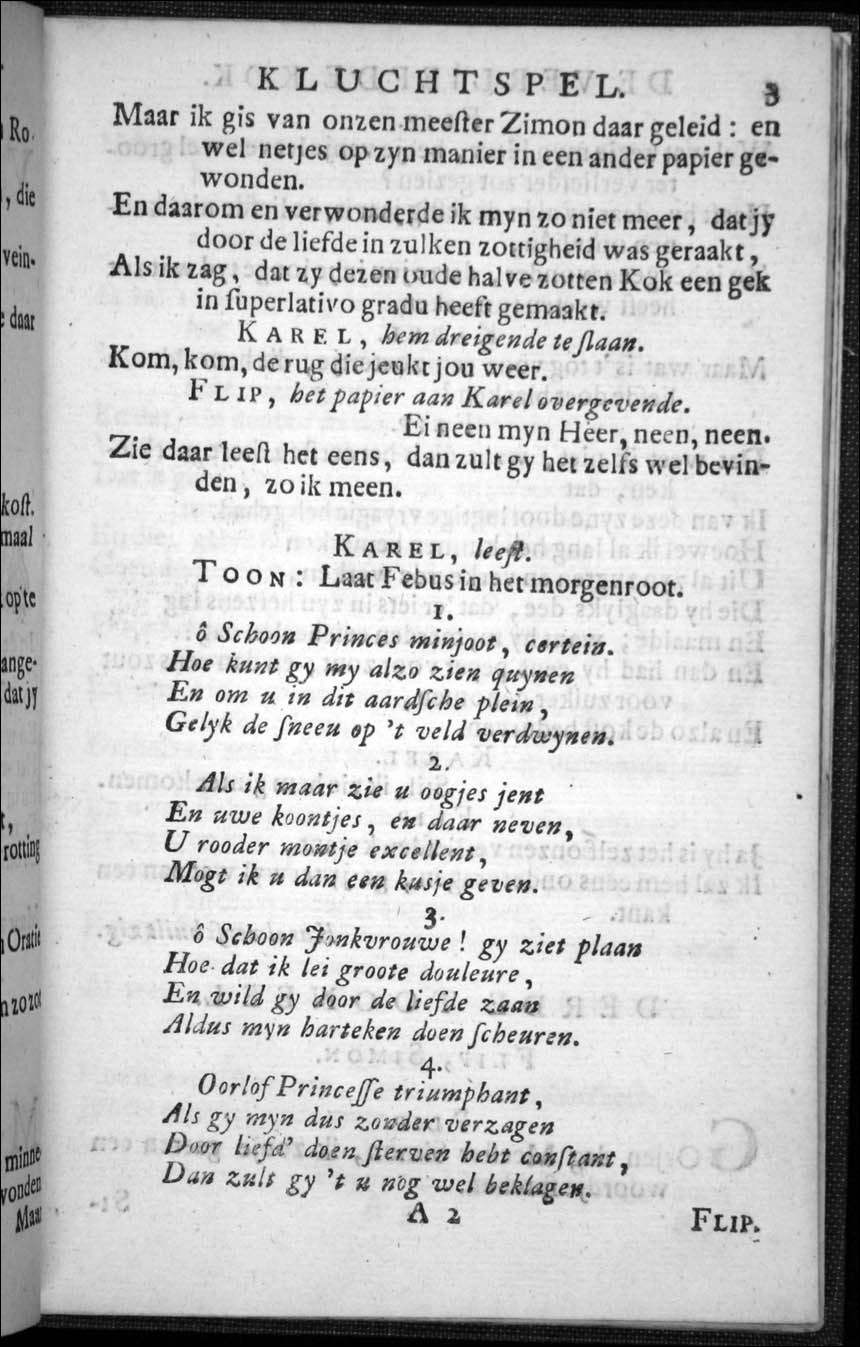 KLUCHTSPEL. 3
Maar ik gis van onzen meeſter Zimon daar geleid : en
wel netjes op zyn manier in een ander papier ge-
wonden.
En daarom en verwonderde ik myn zo niet meer, dat jy
door de liefde in zulken zottigheid was geraakt,
Als ik zag, dat zy dezen oude halve zotten Kok een gek
in ſuperlativo gradu heeft gemaakt.
KAREL, hem dreigende te ſlaan.
Kom, kom, de rug die jeukt jou weer.
FLIP, het papier aan Karel overgevende.
Ei neen myn Heer, neen, neen.
Zie daar leeſt het eens, dan zult gy het zelfs wel bevin-
den, zo ik meen.
KAREL, leeſt.
TOON: Laat Febus in het morgenroot.
1.
ô Schoon Princes minjoot, certein.
Hoe kunt gy my alzo zien quynen
En om u in dit aardſche plein,
Gelyk de ſneeu op 't veld verdwynen.
2.
Als ik maar zie u oogjes jent
En uwe koontjes, en daar neven,
U rooder montje excellent,
Mogt ik u dan een kusje geven.
3.
ô Schoon Jonkvrouwe ! gy ziet plaan
Hoe dat ik lei groote douleure,
En wild gy door de liefde zaan
Aldus myn harteken doen ſcheuren.
4.
Oorlof Princeſſe triumphant,
Als gy myn dus zonder verzagen
Door liefd' doen ſterven hebt conſtant,
Dan zult gy 't u nog wel beklagen.
A 2 FLIP.
Ro
, die
vein-
daar
koſt.
maal
op te
ange-
dat jy
rotting
Oratie
n zo zot
minne
vonden
Maar